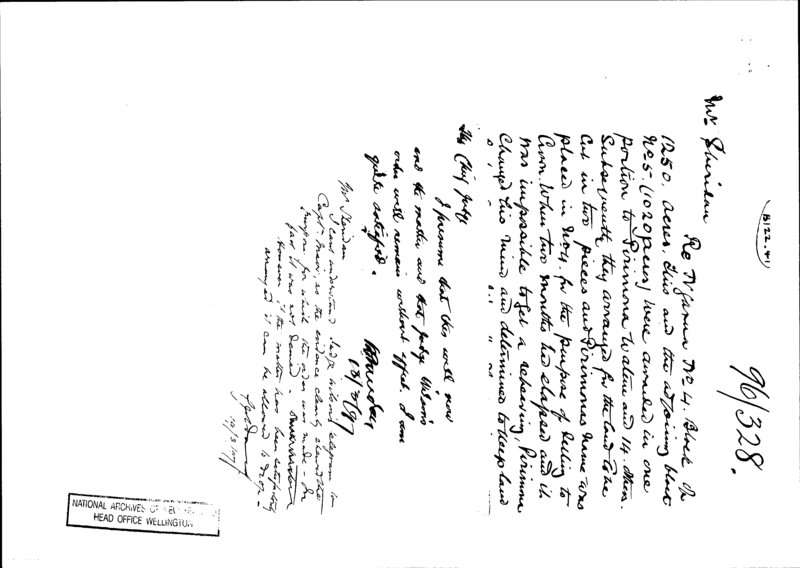 B122.41
96/328.
Mr Sheridan
Re Ngarara No 4. Block of
1250. acres. This and the adjoining block
No 5. (1020 acres) were awarded in one
portion to Pirimona Watene and 14 others.
Subsequently they arranged for the land to be
cut in two pieces and Pirimonas name was
placed in No 4 for the purpose of selling to
Crown. When two months had elapsed and it
was impossible to get a rehearing, Pirimona
changed his mind and determined to keep land
The Chief Judge
I presume that this will now
end the matter and that Judge
order will remain without effect. I am
quite satisfied.
13/3/97
Mr Sheridan
I can't understand Judge telegram to
Capt. as the evidence clearly shews the
purpose for which the order was made - In
fact it was not denied -
However if the matter has been satisfactorily
arranged it can be allowed to drop -
NATIONAL ARCHIVES OF NEW
HEAD OFFICE WELLINGTON